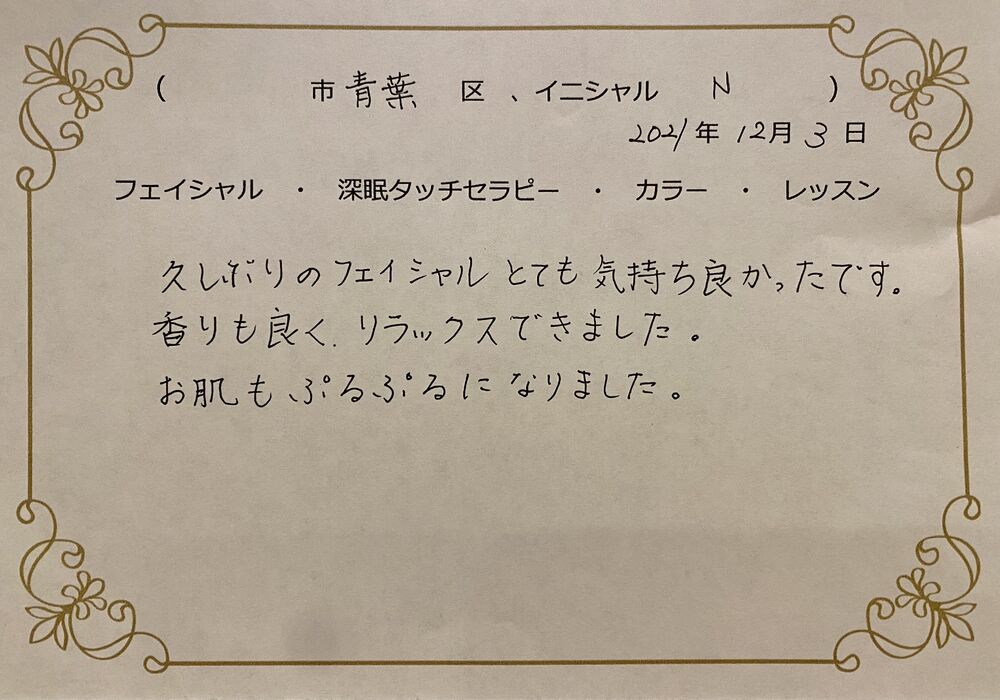 ( 市 青葉 区 、イニシャル N )
2021年 12月 3日
フェイシャル ・ 深眠タッチセラピー ・ カラー ・ レッスン
久しぶりのフェイシャル とても気持ち良かったです。
香りも良く、リラックスできました。
お肌もぷるぷるになりました。